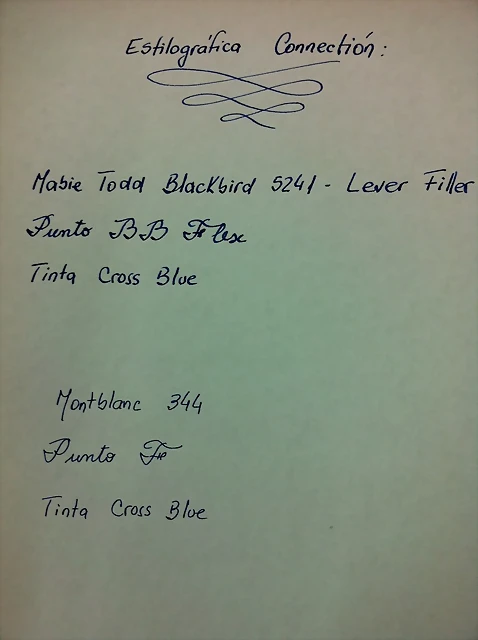 Estilográfica Connectión:
Mabie Todd Blackbird 5241 - Lever Filler
Punto BB Flex
Tinta Cross Blue
Montblanc 344
Punto F
Tinta Cross Blue